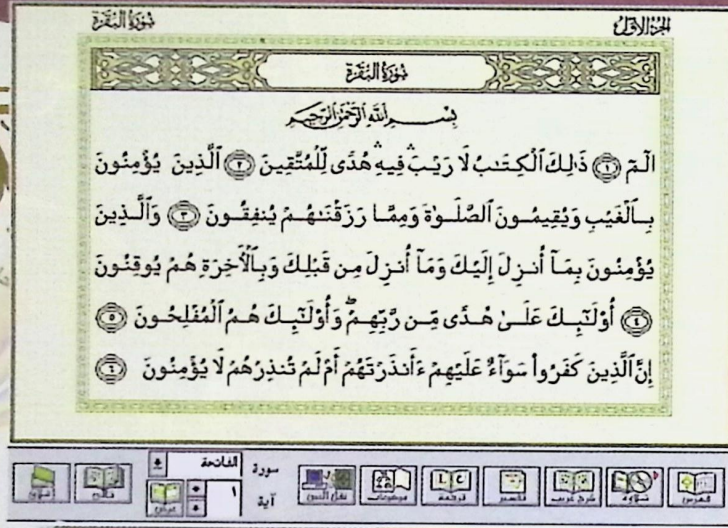 الجزء الأول
سورة البقرة
سورة البقرة
بِسْمِ اللَّهِ الرَّحْمَٰنِ الرَّحِيمِ
الٓمٓ ﴿١﴾ ذَٰلِكَ ٱلْكِتَٰبُ لَا رَيْبَ ۛ فِيهِ ۛ هُدًى لِّلْمُتَّقِينَ ﴿٢﴾ ٱلَّذِينَ يُؤْمِنُونَ
بِٱلْغَيْبِ وَيُقِيمُونَ ٱلصَّلَوٰةَ وَمِمَّا رَزَقْنَٰهُمْ يُنفِقُونَ ﴿٣﴾ وَٱلَّذِينَ
يُؤْمِنُونَ بِمَآ أُنزِلَ إِلَيْكَ وَمَآ أُنزِلَ مِن قَبْلِكَ وَبِٱلْأَخِرَةِ هُمْ يُوقِنُونَ
﴿٤﴾ أُوْلَٰٓئِكَ عَلَىٰ هُدًى مِّن رَّبِّهِمْ ۖ وَأُوْلَٰٓئِكَ هُمُ ٱلْمُفْلِحُونَ ﴿٥﴾
إِنَّ ٱلَّذِينَ كَفَرُواْ سَوَآءٌ عَلَيْهِمْ ءَأَنذَرْتَهُمْ أَمْ لَمْ تُنذِرْهُمْ لَا يُؤْمِنُونَ ﴿٦﴾
سورة الفاتحة
آية ١
الفهرس تلاوة شرح غريب تفسير ترجمة موضوعات نقل النص عرض